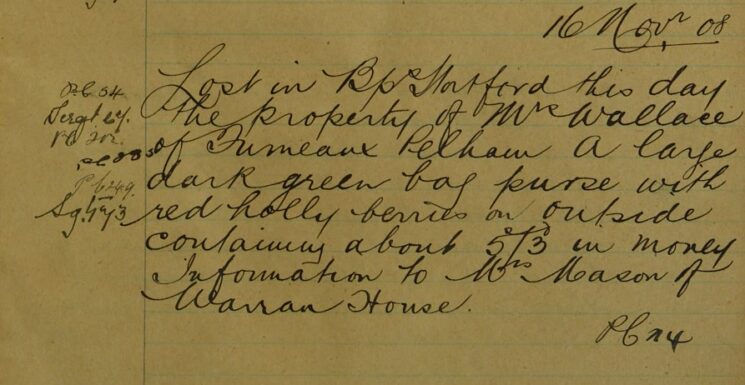 16 Novr 08
Lost in Bps Stortford this day
the property of Mrs Wallace
of Furneaux Pelham A large
dark green bag purse with
red holly berries on outside
containing about 5/3 in money
Information to Mrs Mason of
Warran House.
PC
PC 54
Sergt
PC
PC
PC 249
Sg.